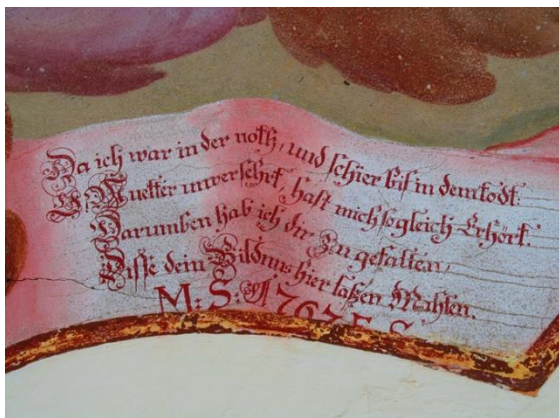 Da ich war in der noth, und schier bis in dem todt.
O Muetter unversehrt, hast mich sogleich Erhört.
Darumben hab ich dir Zu gefallen,
Disse dein Bildnus hier laßen Mahlen.
M: S: 1767 F. S.